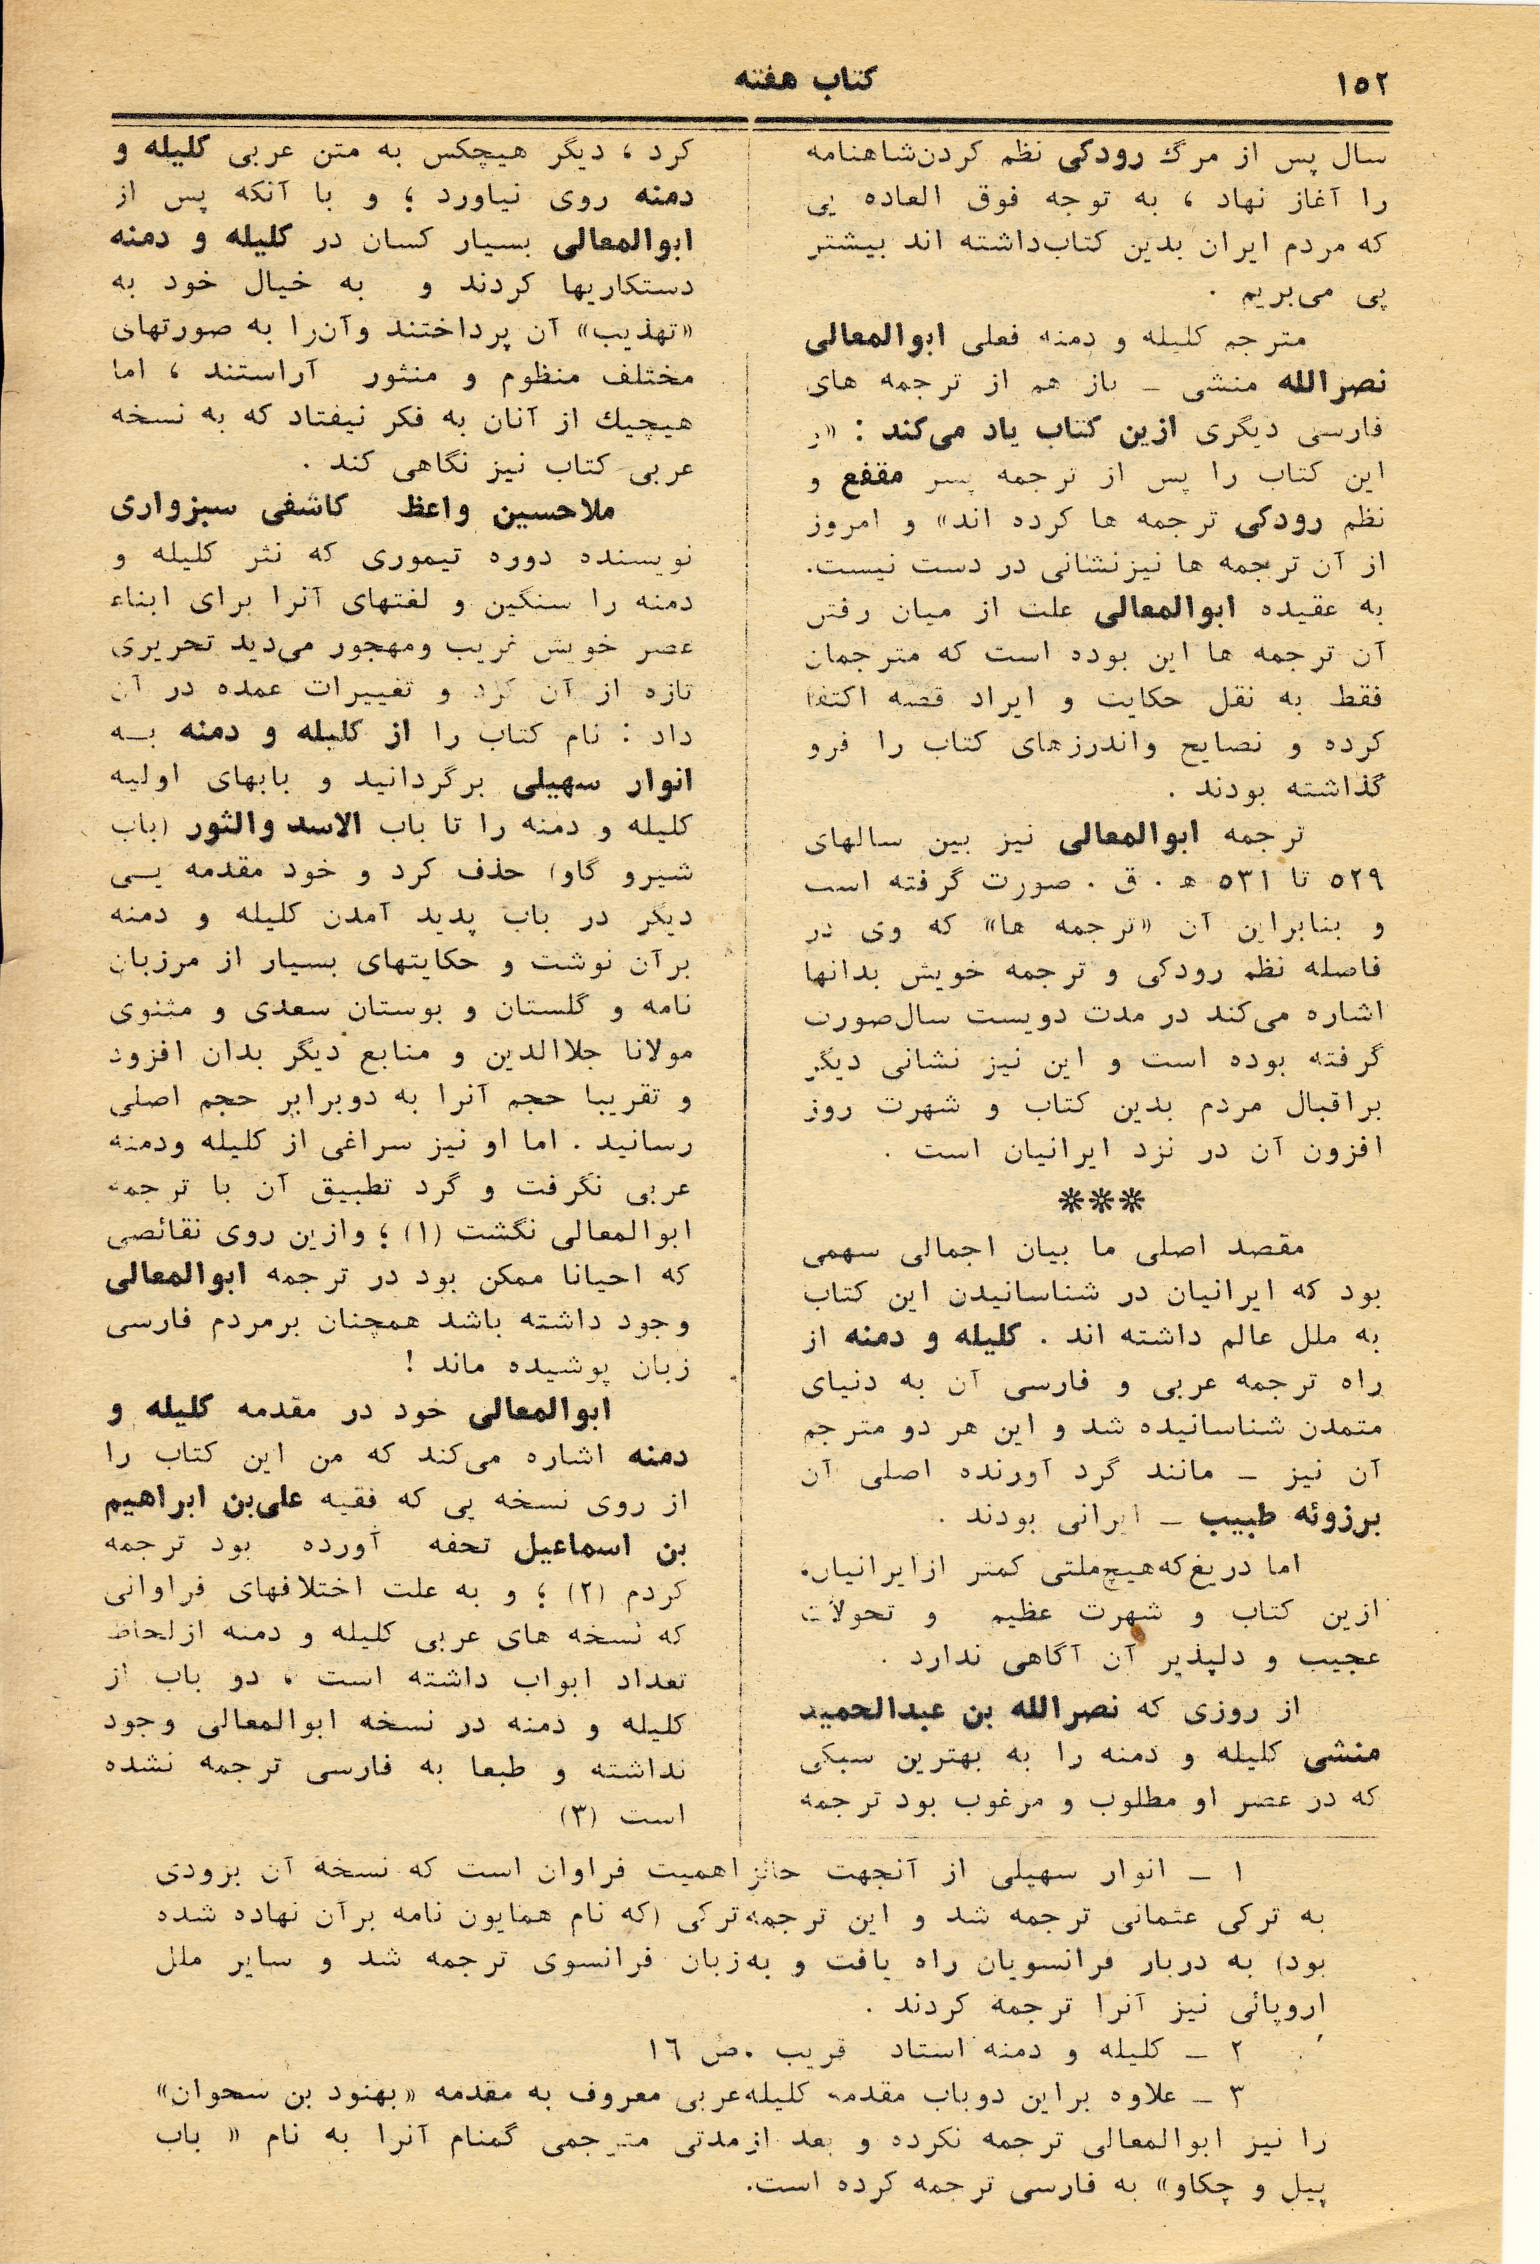 ١٥٢
كتاب هفته
سال پس از مرگ رودكى نظم كردن شاهنامه
را آغاز نهاد ، به توجه فوق العاده يى
كه مردم ايران بدين كتاب داشته اند بيشتر
پى مى‌بريم .
مترجم كليله و دمنه فعلى ابوالمعالى
نصرالله منشى ـ باز هم از ترجمه هاى
فارسى ديگرى ازين كتاب ياد مى‌كند : «و
اين كتاب را پس از ترجمه پسر مقفع و
نظم رودكى ترجمه ها كرده اند» و امروز
از آن ترجمه ها نيز نشانى در دست نيست.
به عقيده ابوالمعالى علت از ميان رفتن
آن ترجمه ها اين بوده است كه مترجمان
فقط به نقل حكايت و ايراد قصه اكتفا
كرده و نصايح واندرزهاى كتاب را فرو
گذاشته بودند .
ترجمه ابوالمعالى نيز بين سالهاى
٥٢٩ تا ٥٣١ ه . ق . صورت گرفته است
و بنابراين آن «ترجمه ها» كه وى در
فاصله نظم رودكى و ترجمه خويش بدانها
اشاره مى‌كند در مدت دويست سال صورت
گرفته بوده است و اين نيز نشانى ديگر
براقبال مردم بدين كتاب و شهرت روز
افزون آن در نزد ايرانيان است .
***
مقصد اصلى ما بيان اجمالى سهمى
بود كه ايرانيان در شناسانيدن اين كتاب
به ملل عالم داشته اند . كليله و دمنه از
راه ترجمه عربى و فارسى آن به دنياى
متمدن شناسانيده شد و اين هر دو مترجم
آن نيز ـ مانند گرد آورنده اصلى آن
برزوئه طبيب ـ ايرانى بودند .
اما دريغ كه هيچ ملتى كمتر از ايرانيان،
ازين كتاب و شهرت عظيم و تحولات
عجيب و دلپذير آن آگاهى ندارد .
از روزى كه نصرالله بن عبدالحميد
منشى كليله و دمنه را به بهترين سبكى
كه در عصر او مطلوب و مرغوب بود ترجمه
كرد ، ديگر هيچكس به متن عربى كليله و
دمنه روى نياورد ؛ و با آنكه پس از
ابوالمعالى بسيار كسان در كليله و دمنه
دستكاريها كردند و به خيال خود به
«تهذيب» آن پرداختند وآن‌را به صورتهاى
مختلف منظوم و منثور آراستند ، اما
هيچيك از آنان به فكر نيفتاد كه به نسخه
عربى كتاب نيز نگاهى كند .
ملاحسين واعظ كاشفى سبزوارى
نويسنده دوره تيمورى كه نثر كليله و
دمنه را سنگين و لغتهاى آنرا براى ابناء
عصر خويش غريب ومهجور مى‌ديد تحريرى
تازه از آن كرد و تغييرات عمده در آن
داد : نام كتاب را از كليله و دمنه به
انوار سهيلى برگردانيد و بابهاى اوليه
كليله و دمنه را تا باب الاسد والثور (باب
شيرو گاو) حذف كرد و خود مقدمه يى
ديگر در باب پديد آمدن كليله و دمنه
برآن نوشت و حكايتهاى بسيار از مرزبان
نامه و گلستان و بوستان سعدى و مثنوى
مولانا جلاالدين و منابع ديگر بدان افزود
و تقريبا حجم آنرا به دوبرابر حجم اصلى
رسانيد . اما او نيز سراغى از كليله ودمنه
عربى نگرفت و گرد تطبيق آن با ترجمه
ابوالمعالى نگشت (١) ؛ وازين روى نقائصى
كه احيانا ممكن بود در ترجمه ابوالمعالى
وجود داشته باشد همچنان برمردم فارسى
زبان پوشيده ماند !
ابوالمعالى خود در مقدمه كليله و
دمنه اشاره مى‌كند كه من اين كتاب را
از روى نسخه يى كه فقيه على‌بن ابراهيم
بن اسماعيل تحفه آورده بود ترجمه
كردم (٢) ؛ و به علت اختلافهاى فراوانى
كه نسخه هاى عربى كليله و دمنه ازلحاظ
تعداد ابواب داشته است ، دو باب از
كليله و دمنه در نسخه ابوالمعالى وجود
نداشته و طبعا به فارسى ترجمه نشده
است (٣)
١ ـ انوار سهيلى از آنجهت حائز اهميت فراوان است كه نسخه آن بزودى
به تركى عثمانى ترجمه شد و اين ترجمه تركى (كه نام همايون نامه برآن نهاده شده
بود) به دربار فرانسويان راه يافت و به زبان فرانسوى ترجمه شد و ساير ملل
اروپائى نيز آنرا ترجمه كردند .
٢ ـ كليله و دمنه استاد قريب .ص ١٦
٣ ـ علاوه براين دوباب مقدمه كليله عربى معروف به مقدمه «بهنود بن سحوان»
را نيز ابوالمعالى ترجمه نكرده و بعد ازمدتى مترجمى گمنام آنرا به نام « باب
پيل و چكاو» به فارسى ترجمه كرده است.